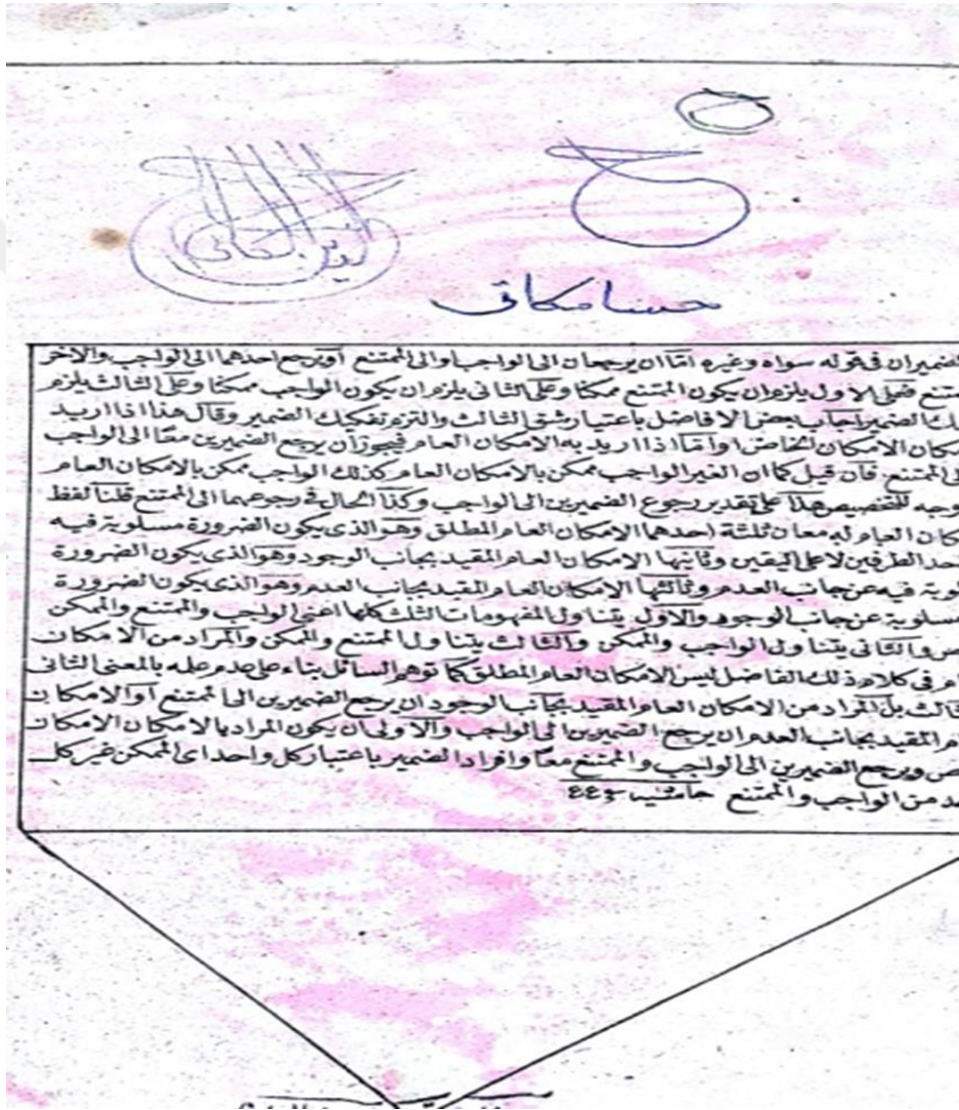 ح
حسامكاتى
الضميران فى قوله سواه وغيره امّا ان يرجعان الى الواجب او الى الممتنع او يرجع احدهما الى الواجب والاخر
متنع فعلى الاول يلزم ان يكون الممتنع ممكنا وعلى الثانى يلزم ان يكون الواجب ممكنا وعلى الثالث يلزم
ك الضمير اجاب بعض الافاضل باعتبار شق الثالث والتزم تفكيك الضمير وقال هذا اذا اريد
مكان الامكان الخاص او امّا اذا اريد به الامكان العام فيجوز ان يرجع الضميرين معًا الى الواجب
لى الممتنع فان قيل كما ان الغير الواجب ممكن بالامكان العام كذلك الواجب ممكن بالامكان العام
وجه للتخصيص هذا على تقدير رجوع الضميرين الى الواجب وكذا الحال فى رجوعهما الى الممتنع قلنا لفظ
كان العام له معان ثلثة احدهما الامكان العام المطلق وهو الذى يكون الضرورة مسلوبة فيه
حد الطرفين لا على اليقين وثانيها الامكان العام المقيد بجانب الوجود وهو الذى يكون الضرورة
لوبة فيه عن جانب العدم وثالثها الامكان العام المقيد بجانب العدم وهو الذى يكون الضرورة
مسلوبة عن جانب الوجود والاول يتناول المفهومات الثلث كلها اعنى الواجب والممتنع والممكن
ص والثانى يتناول الواجب والممكن والثالث يتناول الممتنع والممكن والمراد من الامكان
ام فى كلام ذلك الفاضل ليس الامكان العام المطلق كما توهم السائل بناء على عدم علمه بالمعنى الثانى
ثالث بل المراد من الامكان العام المقيد بجانب الوجود ان يرجع الضميرين الى الممتنع او الامكان
ام المقيد بجانب العدم ان يرجع الضميرين الى الواجب والاولى ان يكون المراد بالامكان الامكان
ص ويرجع الضميرين الى الواجب والممتنع معًا وافراد الضمير باعتبار كل واحد اى الممكن غير كل
حد من الواجب والممتنع